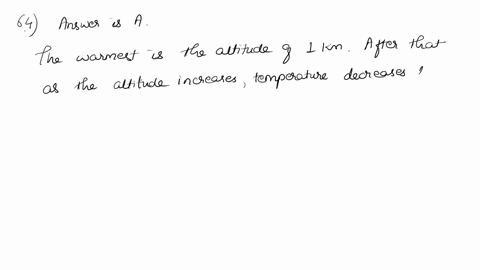 64) Answer is A.
The warmest is the altitude of 1 km. After that
as the altitude increases, temperature decreases,